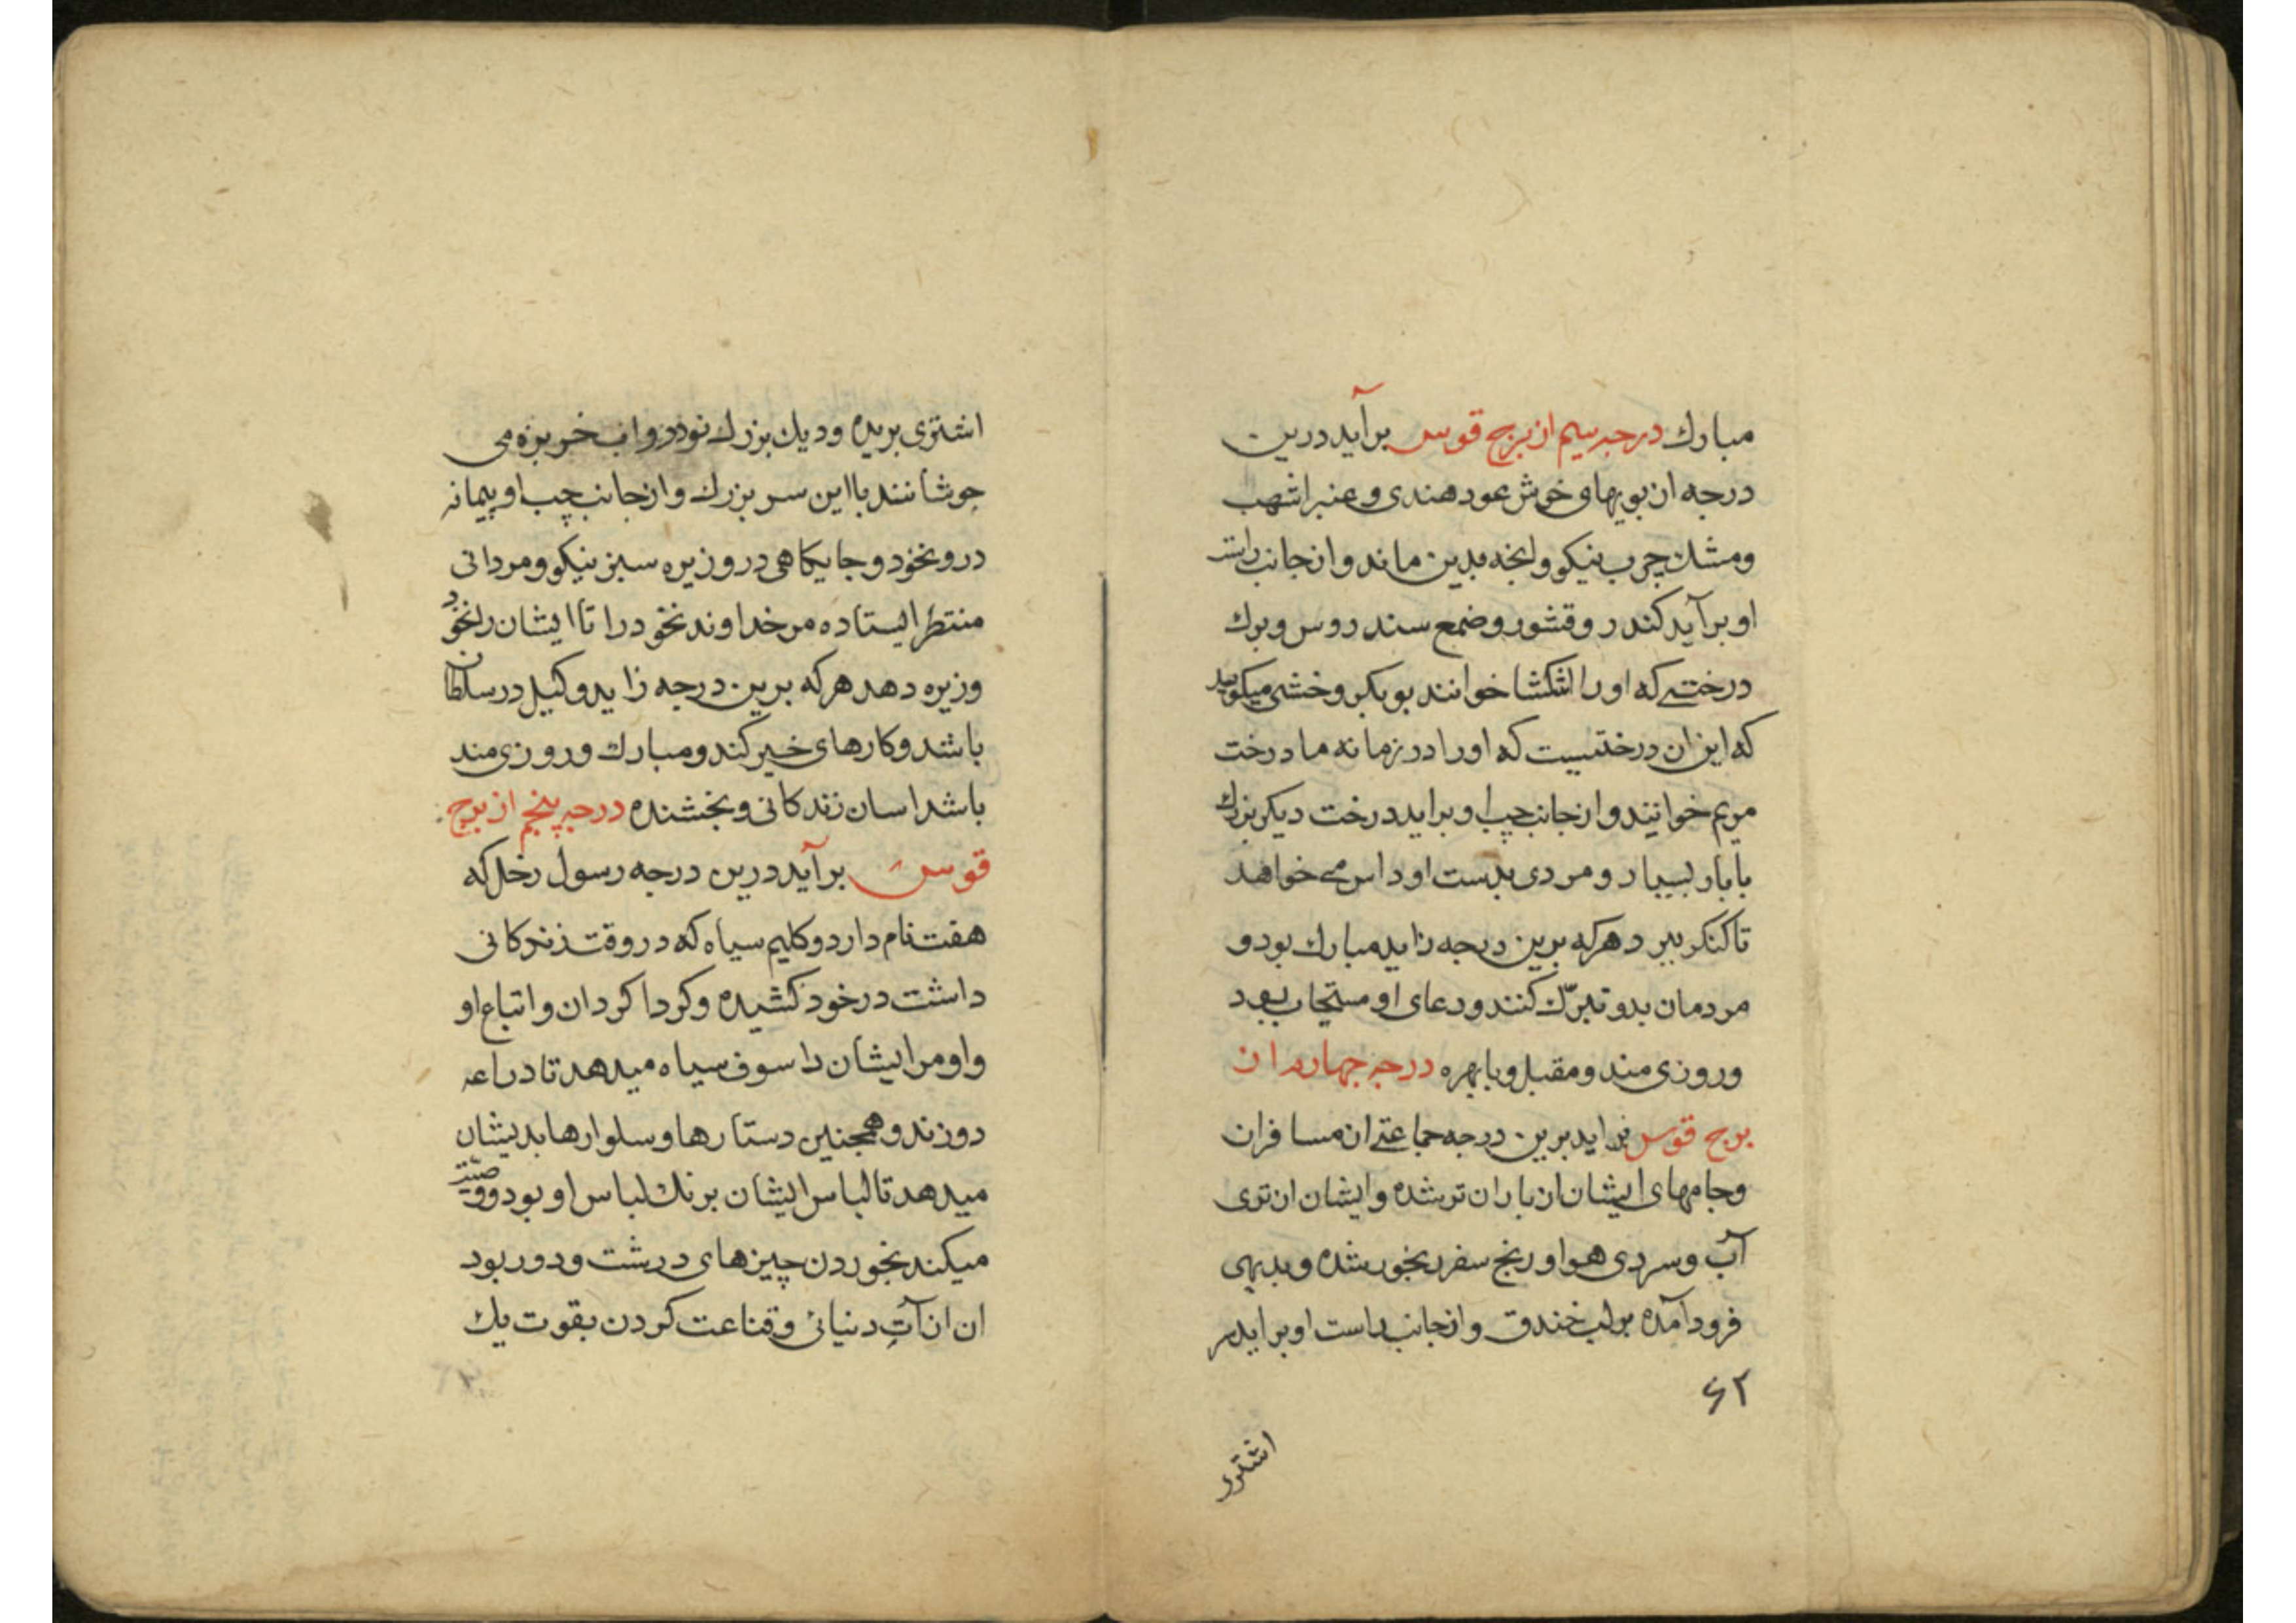 مبارك درجه سیم از برج قوس برآید درین
درجه از بویهای خوش عود هندی و عنبر اشهب
ومشك چرب نیکو وانچه بدین ماند واز جانب راست
او برآید کندر وقشور وضمع سندروس وبرك
درختی که اورا اشکشا خوانند بوبکر وخشی میکوید
که این ان درختیست که اورا در زمانه ما درخت
مریم خوانند واز جانب چپ او براید درخت دیکر بزرك
با بار بسیار و مردی بدست او داس می خواهد
تا کنکر ببرد هرکه برین درجه زاید مبارك بود و
مردمان بدو تبرّك کنند ودعای او مستجاب بود
وروزی مند ومقبل وبا بهره درجه چهارم از
برج قوس براید برین درجه جماعتی از مسافران
وجامهای ایشان از باران تر شده وایشان از تری
آب وسردی هوا ورنج سفر رنجور شده وبدیهی
فرود آمده بر لب خندق واز جانب راست او براید سر
۶۲
اشتری
اشتری بریده ودیك بزرك نو درو اب خربزه می
جوشانند با این سر بزرك واز جانب چپ او پیمانه
درو نخود وجایکاهی درو زیره سبز نیکو ومردانی
منتظر ایستاده مر خداوند نخود را تا ایشان را نخود
وزیره دهد هرکه برین درجه زاید وکیل در سلطان
باشد وکارهای خیر کند ومبارك وروزی مند
باشد اسان زندکانی وبخشنده درجه پنجم از برج
قوس برآید درین درجه رسول زحل که
هفت نام دارد وکلیم سیاه که در وقت زندکانی
داشت در خود کشیده وکرداکرد ان واتباع او
واو مر ایشان را سوف سیاه میدهد تا دراعه
دوزند وهمچنین دستارها وسلوارها بدیشان
میدهد تا لباس ایشان برنك لباس او بود ووصیّت
میکند بخوردن چیزهای درشت ودور بود
ان از آت دنیائی وقناعت کردن بقوت یك